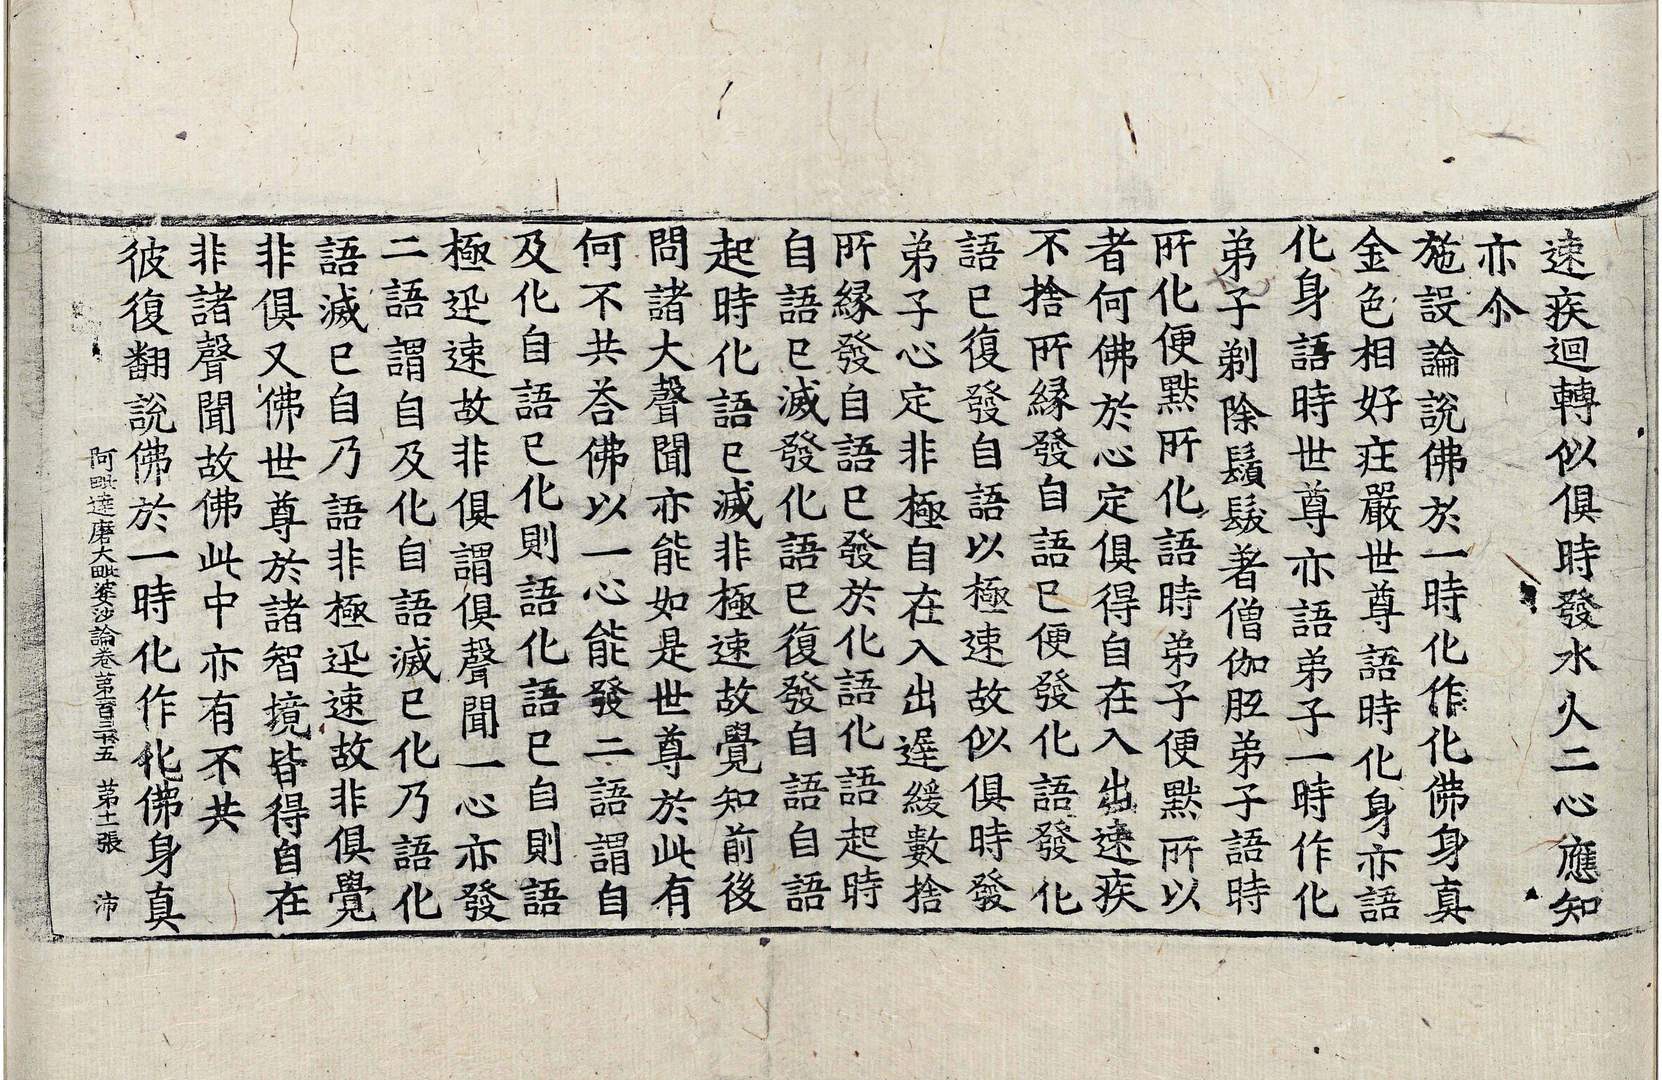 速疾迴轉似俱時發水火二心應知
亦尒
施設論說佛於一時化作化佛身真
金色相好疘嚴世尊語時化身亦語
化身語時世尊亦語弟子一時作化
弟子剃除鬚髮著僧伽胝弟子語時
所化便默所化語時弟子便默所以
者何佛於心定俱得自在入出速疾
不捨所緣發自語已便發化語發化
語已復發自語以極速故似俱時發
弟子心定非極自在入出遲緩數捨
所緣發自語已發於化語化語起時
自語已滅發化語已復發自語自語
起時化語已滅非極速故覺知前後
問諸大聲聞亦能如是世尊於此有
何不共荅佛以一心能發二語謂自
及化自語已化則語化語已自則語
極迅速故非俱謂俱聲聞一心亦發
二語謂自及化自語滅已化乃語化
語滅已自乃語非極迅速故非俱覺
非俱又佛世尊於諸智境皆得自在
非諸聲聞故佛此中亦有不共
彼復翻說佛於一時化作化佛身真
阿毗達磨大毗婆沙論卷苐一百三十五 苐十一張 沛